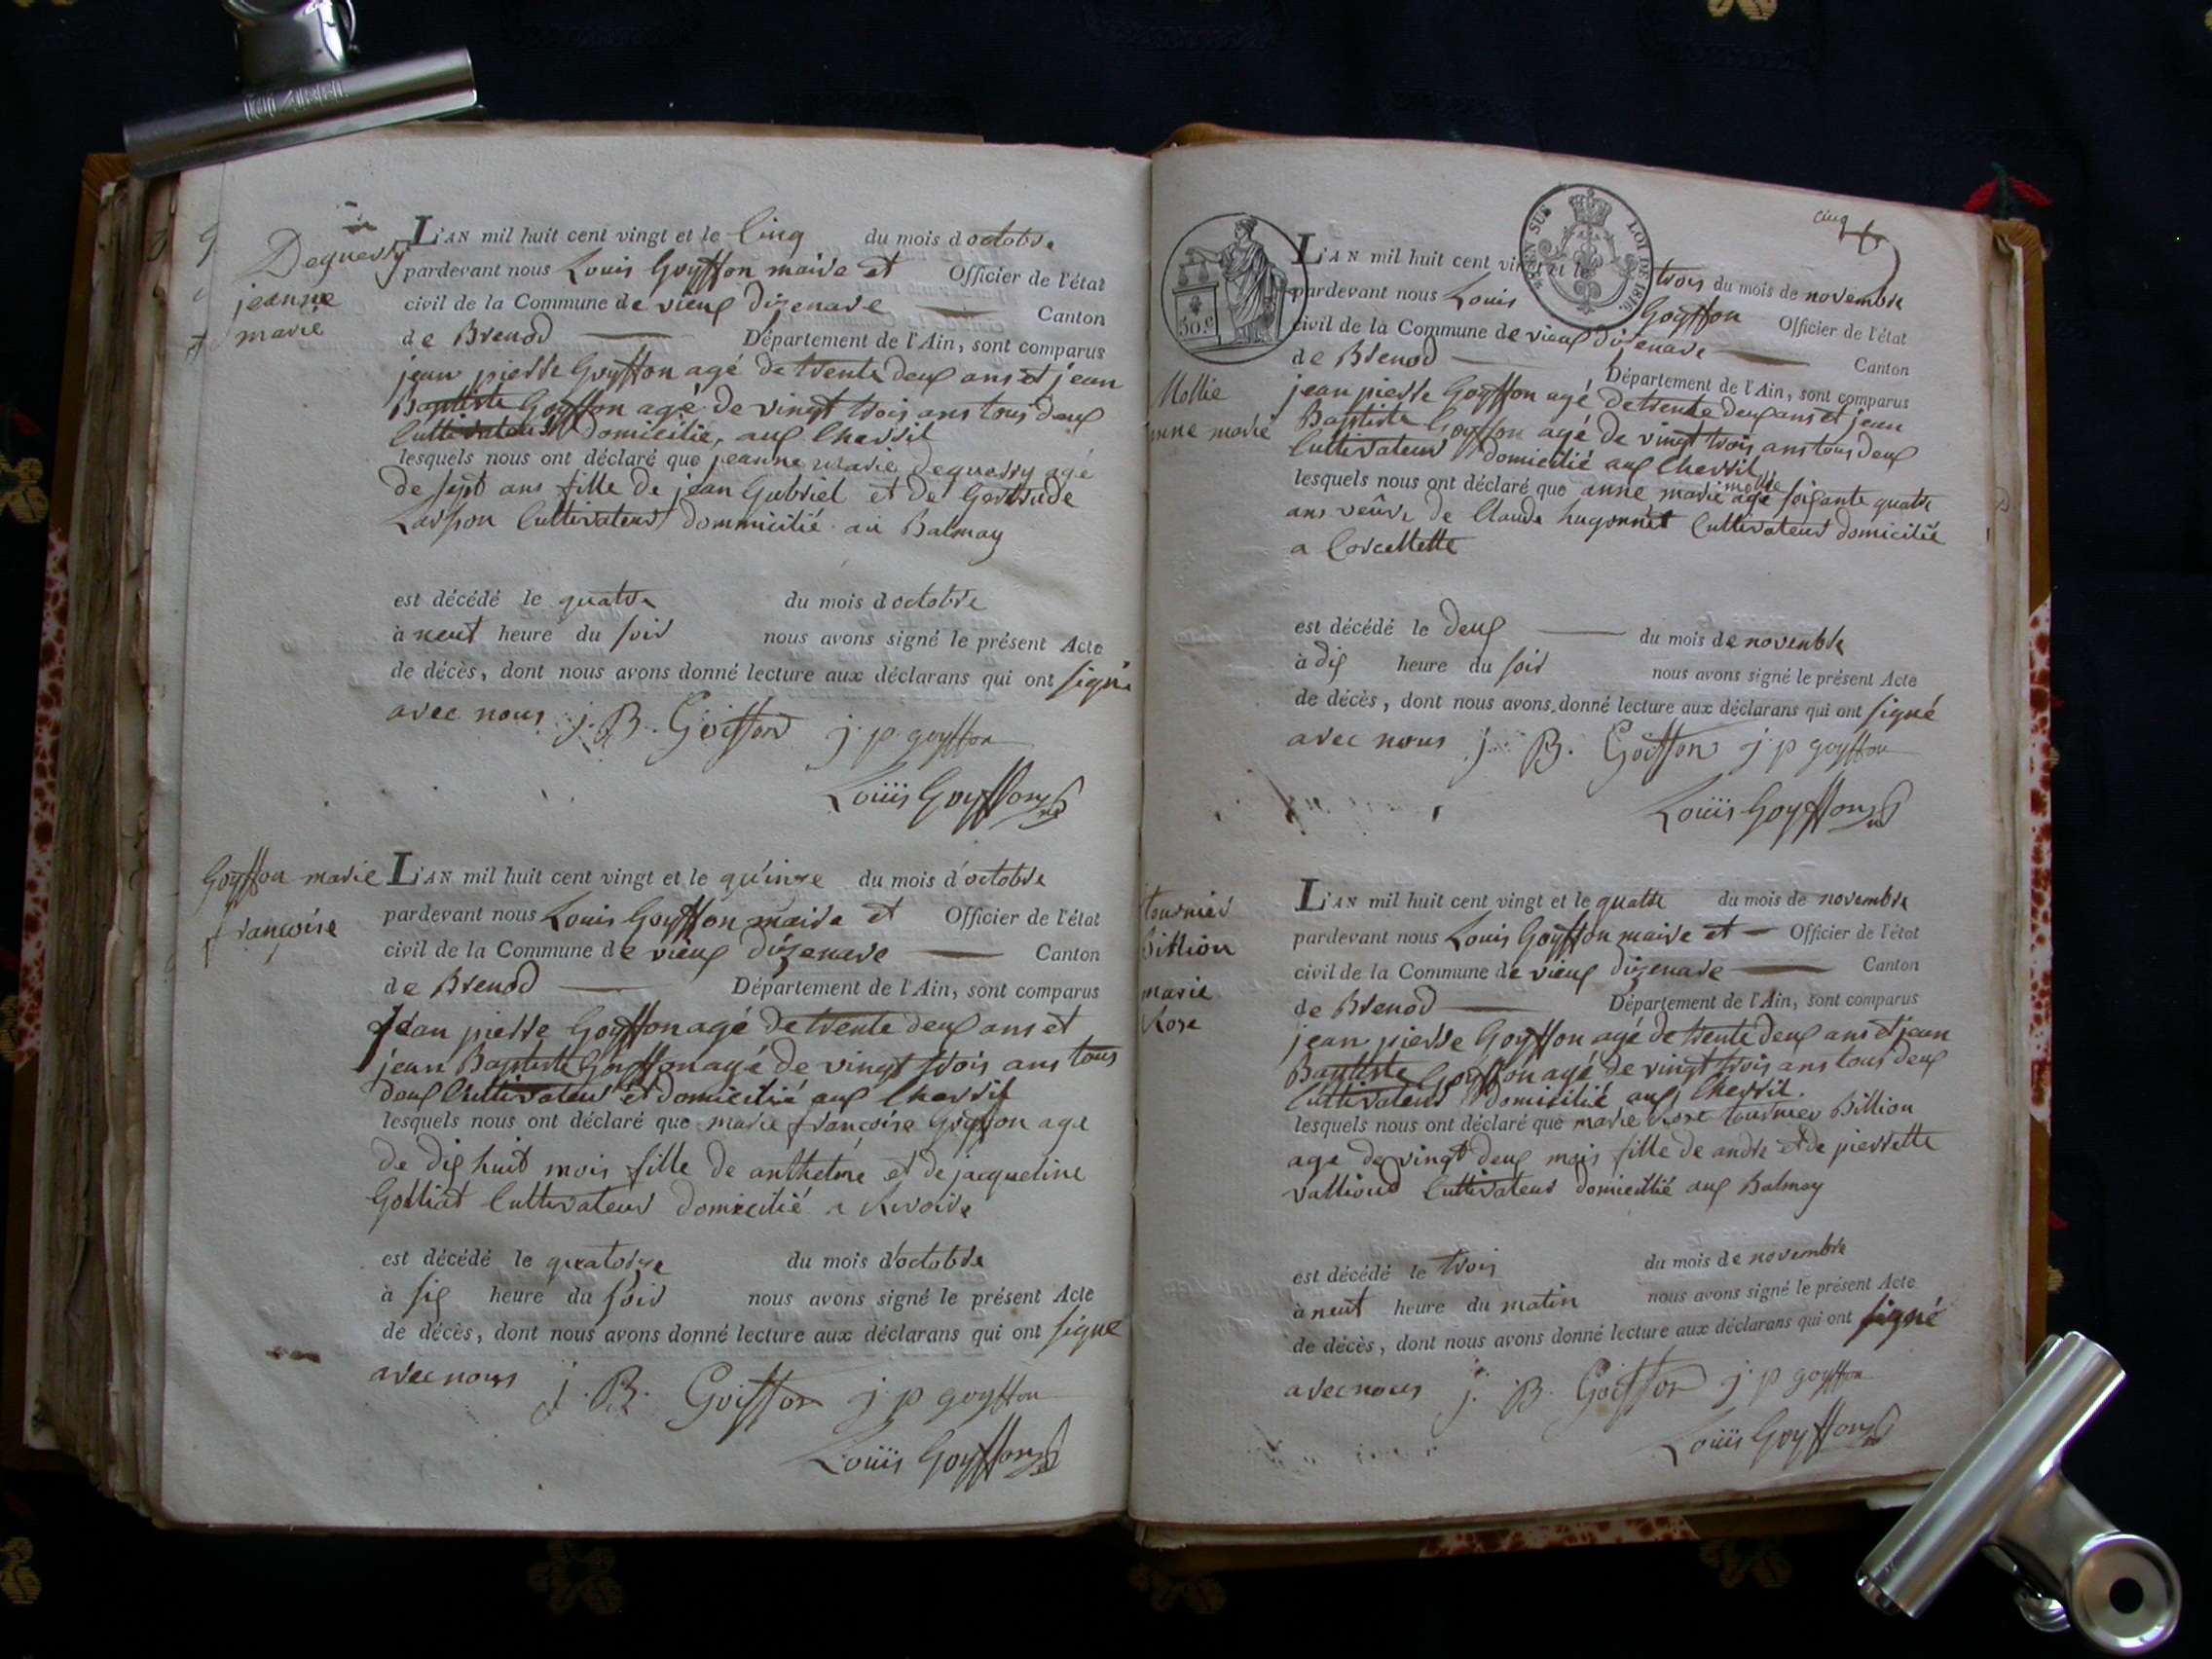 Dequerry
jeanne
marie
L'AN mil huit cent vingt et le Cinq du mois d octobre
pardevant nous Louis Goyffon maire et Officier de l'état
civil de la Commune de vieux dizenave Canton
de Brenod Département de l'Ain, sont comparus
jean pierre Goyffon agé de trente deux ans et jean
Baptiste Goyffon agé de vingt trois ans tous deux
Cultivateurs Domicilié, aux Cherril
lesquels nous ont déclaré que jeanne marie dequerry agé
de sept ans fille de jean Gabriel et de Gertrude
Cultivateur dommicilié au Balmay
est décédé le quatre du mois d octobre
à neuf heure du soir nous avons signé le présent Acte
de décès, dont nous avons donné lecture aux déclarans qui ont signé
avec nous j. B. Goiffon j p goyffon
Louis Goyffon
Goyffon marie
françoise
L'AN mil huit cent vingt et le quinze du mois d'octobre
pardevant nous Louis Goyffon maire et Officier de l'état
civil de la Commune de vieux dizenave Canton
de Brenod Département de l'Ain, sont comparus
Jean pierre Goyffon agé de trente deux ans et
jean Baptiste Goyffon agé de vingt trois ans tous
deux Cultivateur et domicilié aux Cherril
lesquels nous ont déclaré que marie françoise Goyffon age
de dix huit mois fille de anthelme et de jacqueline
Golliat Cultivateur domicilié a Rivoire
est décédé le quatorze du mois d'octobre
à six heure du soir nous avons signé le présent Acte
de décès, dont nous avons donné lecture aux déclarans qui ont signé
avec nous j. B. Goiffon j p goyffon
Louis Goyffon
cinq
EN SUS LOI DE 1816
50.c
Mollie
anne marie
L'AN mil huit cent vingt et le trois du mois de novembre
pardevant nous Louis Goyffon Officier de l'état
civil de la Commune de vieux dizenave Canton
de Brenod Département de l'Ain, sont comparus
jean pierre Goyffon agé de trente deux ans et jean
Baptiste Goyffon agé de vingt trois ans tous deux
Cultivateur domicilié aux Cherril
lesquels nous ont déclaré que anne marie mollie agé soixante quatre
ans veuve de Claude hugonnet Cultivateur domicilié
a Corcellette
est décédé le deux du mois de novembre
à dix heure du soir nous avons signé le présent Acte
de décès, dont nous avons donné lecture aux déclarans qui ont signé
avec nous j. B. Goiffon j p goyffon
Louis Goyffon
tournier
billion
marie
Rose
L'AN mil huit cent vingt et le quatre du mois de novembre
pardevant nous Louis Goyffon maire et Officier de l'état
civil de la Commune de vieux dizenave Canton
de Brenod Département de l'Ain, sont comparus
jean pierre Goyffon agé de trente deux ans et jean
Baptiste Goyffon agé de vingt trois ans tous deux
Cultivateurs domicilié aux Cherril.
lesquels nous ont déclaré que marie Rose tournier Billion
age de vingt deux mois fille de andre et de pierrette
vallioud Cultivateur domicillié aux Balmay
est décédé le trois du mois de novembre
à neuf heure du matin nous avons signé le présent Acte
de décès, dont nous avons donné lecture aux déclarans qui ont signé
avec nous j. B. Goiffon j p goyffon
Louis Goyffon